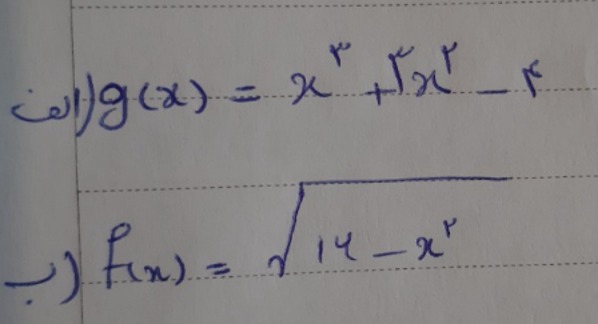 الف) g(x) = x^۳ + ۳x^۲ - ۴
ب) f(x) = √(۱۶ - x^۲)